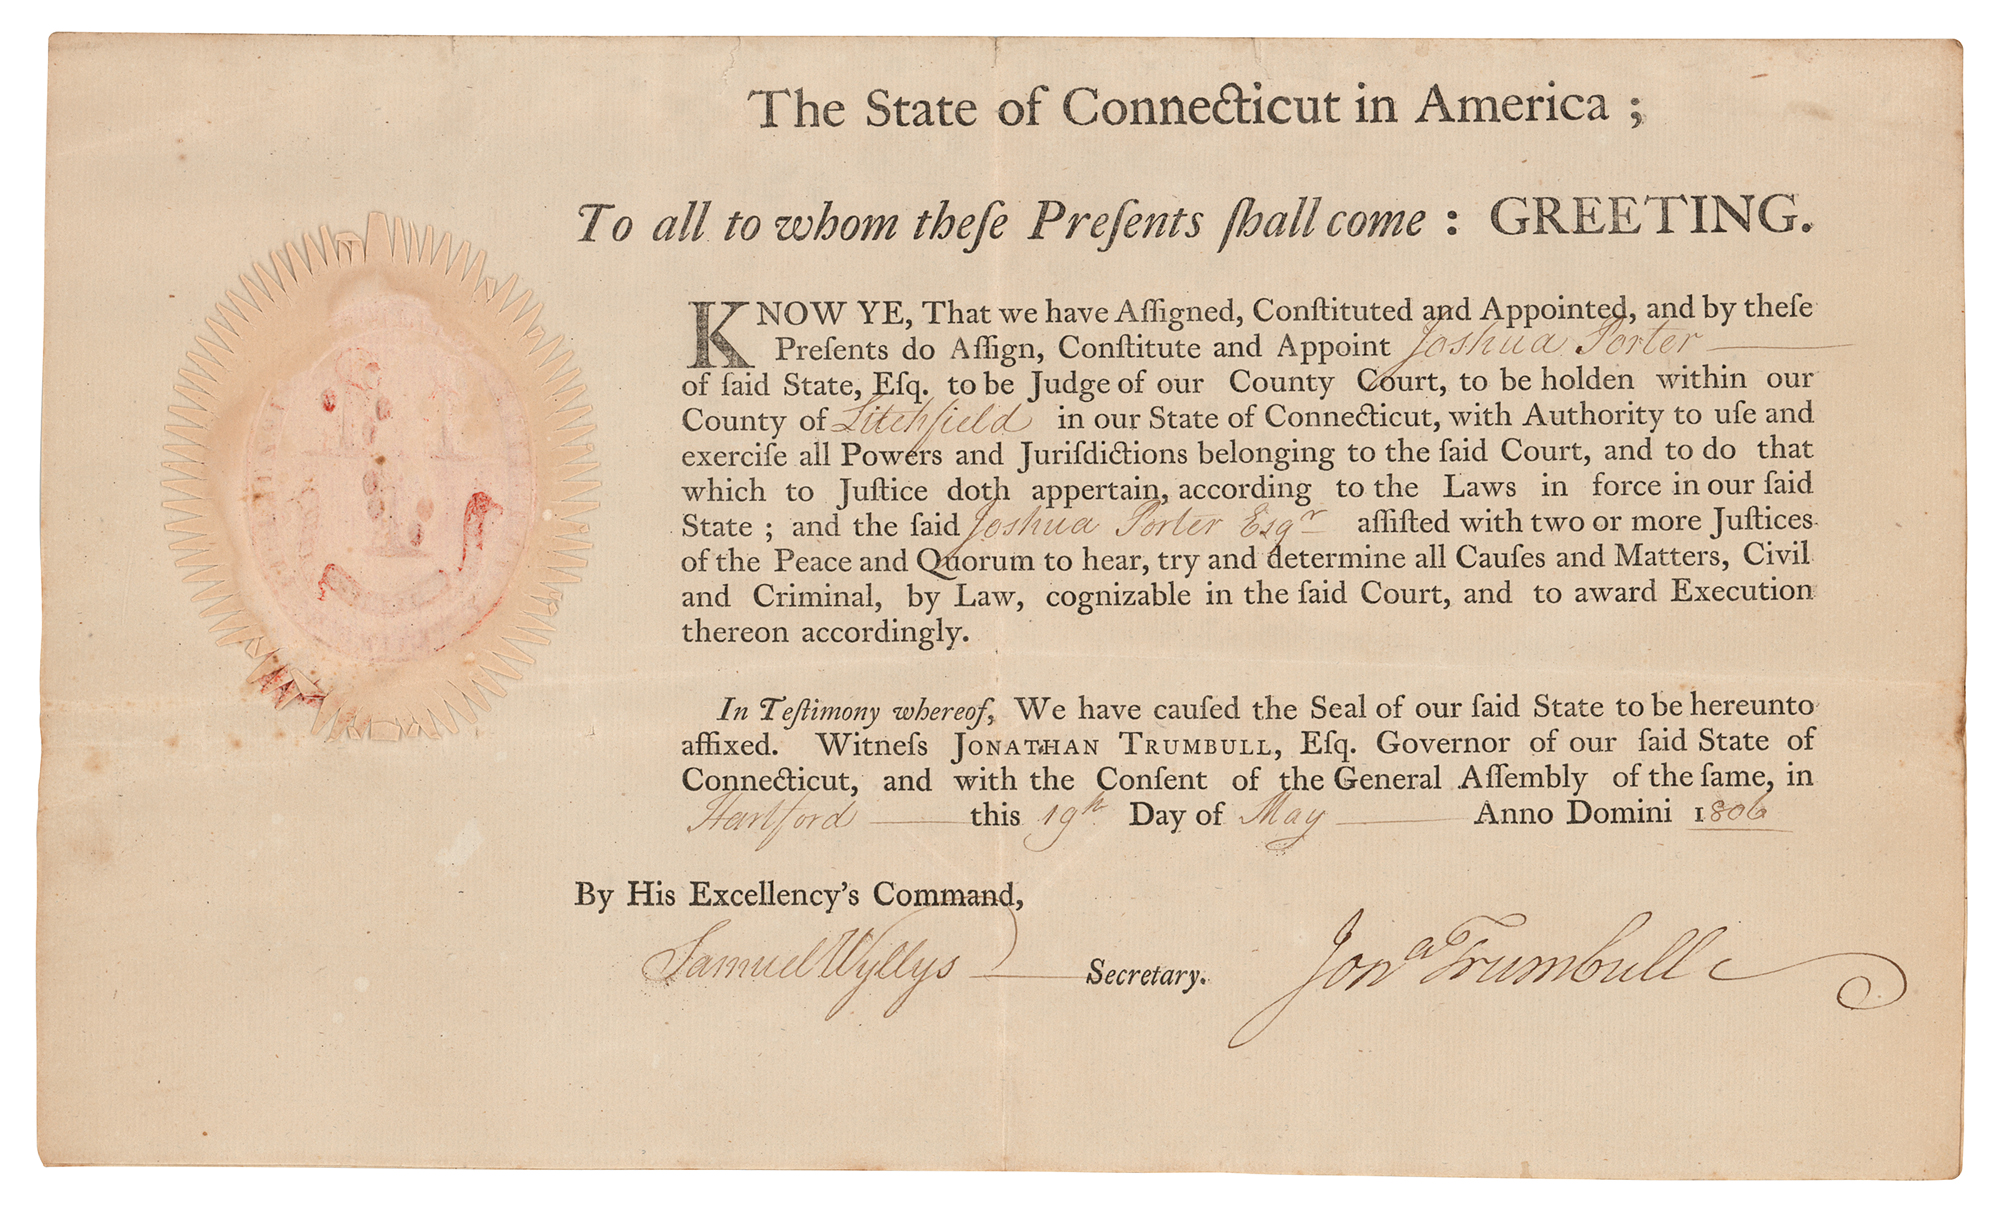 The State of Connecticut in America ;
To all to whom theſe Preſents ſhall come : GREETING.
KNOW YE, That we have Aſſigned, Conſtituted and Appointed, and by theſe
Preſents do Aſſign, Conſtitute and Appoint Joshua Porter
of ſaid State, Eſq. to be Judge of our County Court, to be holden within our
County of Litchfield in our State of Connecticut, with Authority to uſe and
exerciſe all Powers and Juriſdictions belonging to the ſaid Court, and to do that
which to Juſtice doth appertain, according to the Laws in force in our ſaid
State ; and the ſaid Joshua Porter Esqr aſſiſted with two or more Juſtices
of the Peace and Quorum to hear, try and determine all Cauſes and Matters, Civil
and Criminal, by Law, cognizable in the ſaid Court, and to award Execution
thereon accordingly.
In Teſtimony whereof, We have cauſed the Seal of our ſaid State to be hereunto
affixed. Witneſs JONATHAN TRUMBULL, Eſq. Governor of our ſaid State of
Connecticut, and with the Conſent of the General Aſſembly of the ſame, in
Hartford this 19th Day of May Anno Domini 1806
By His Excellency's Command,
Samuel Wyllys Secretary. Jona Trumbull